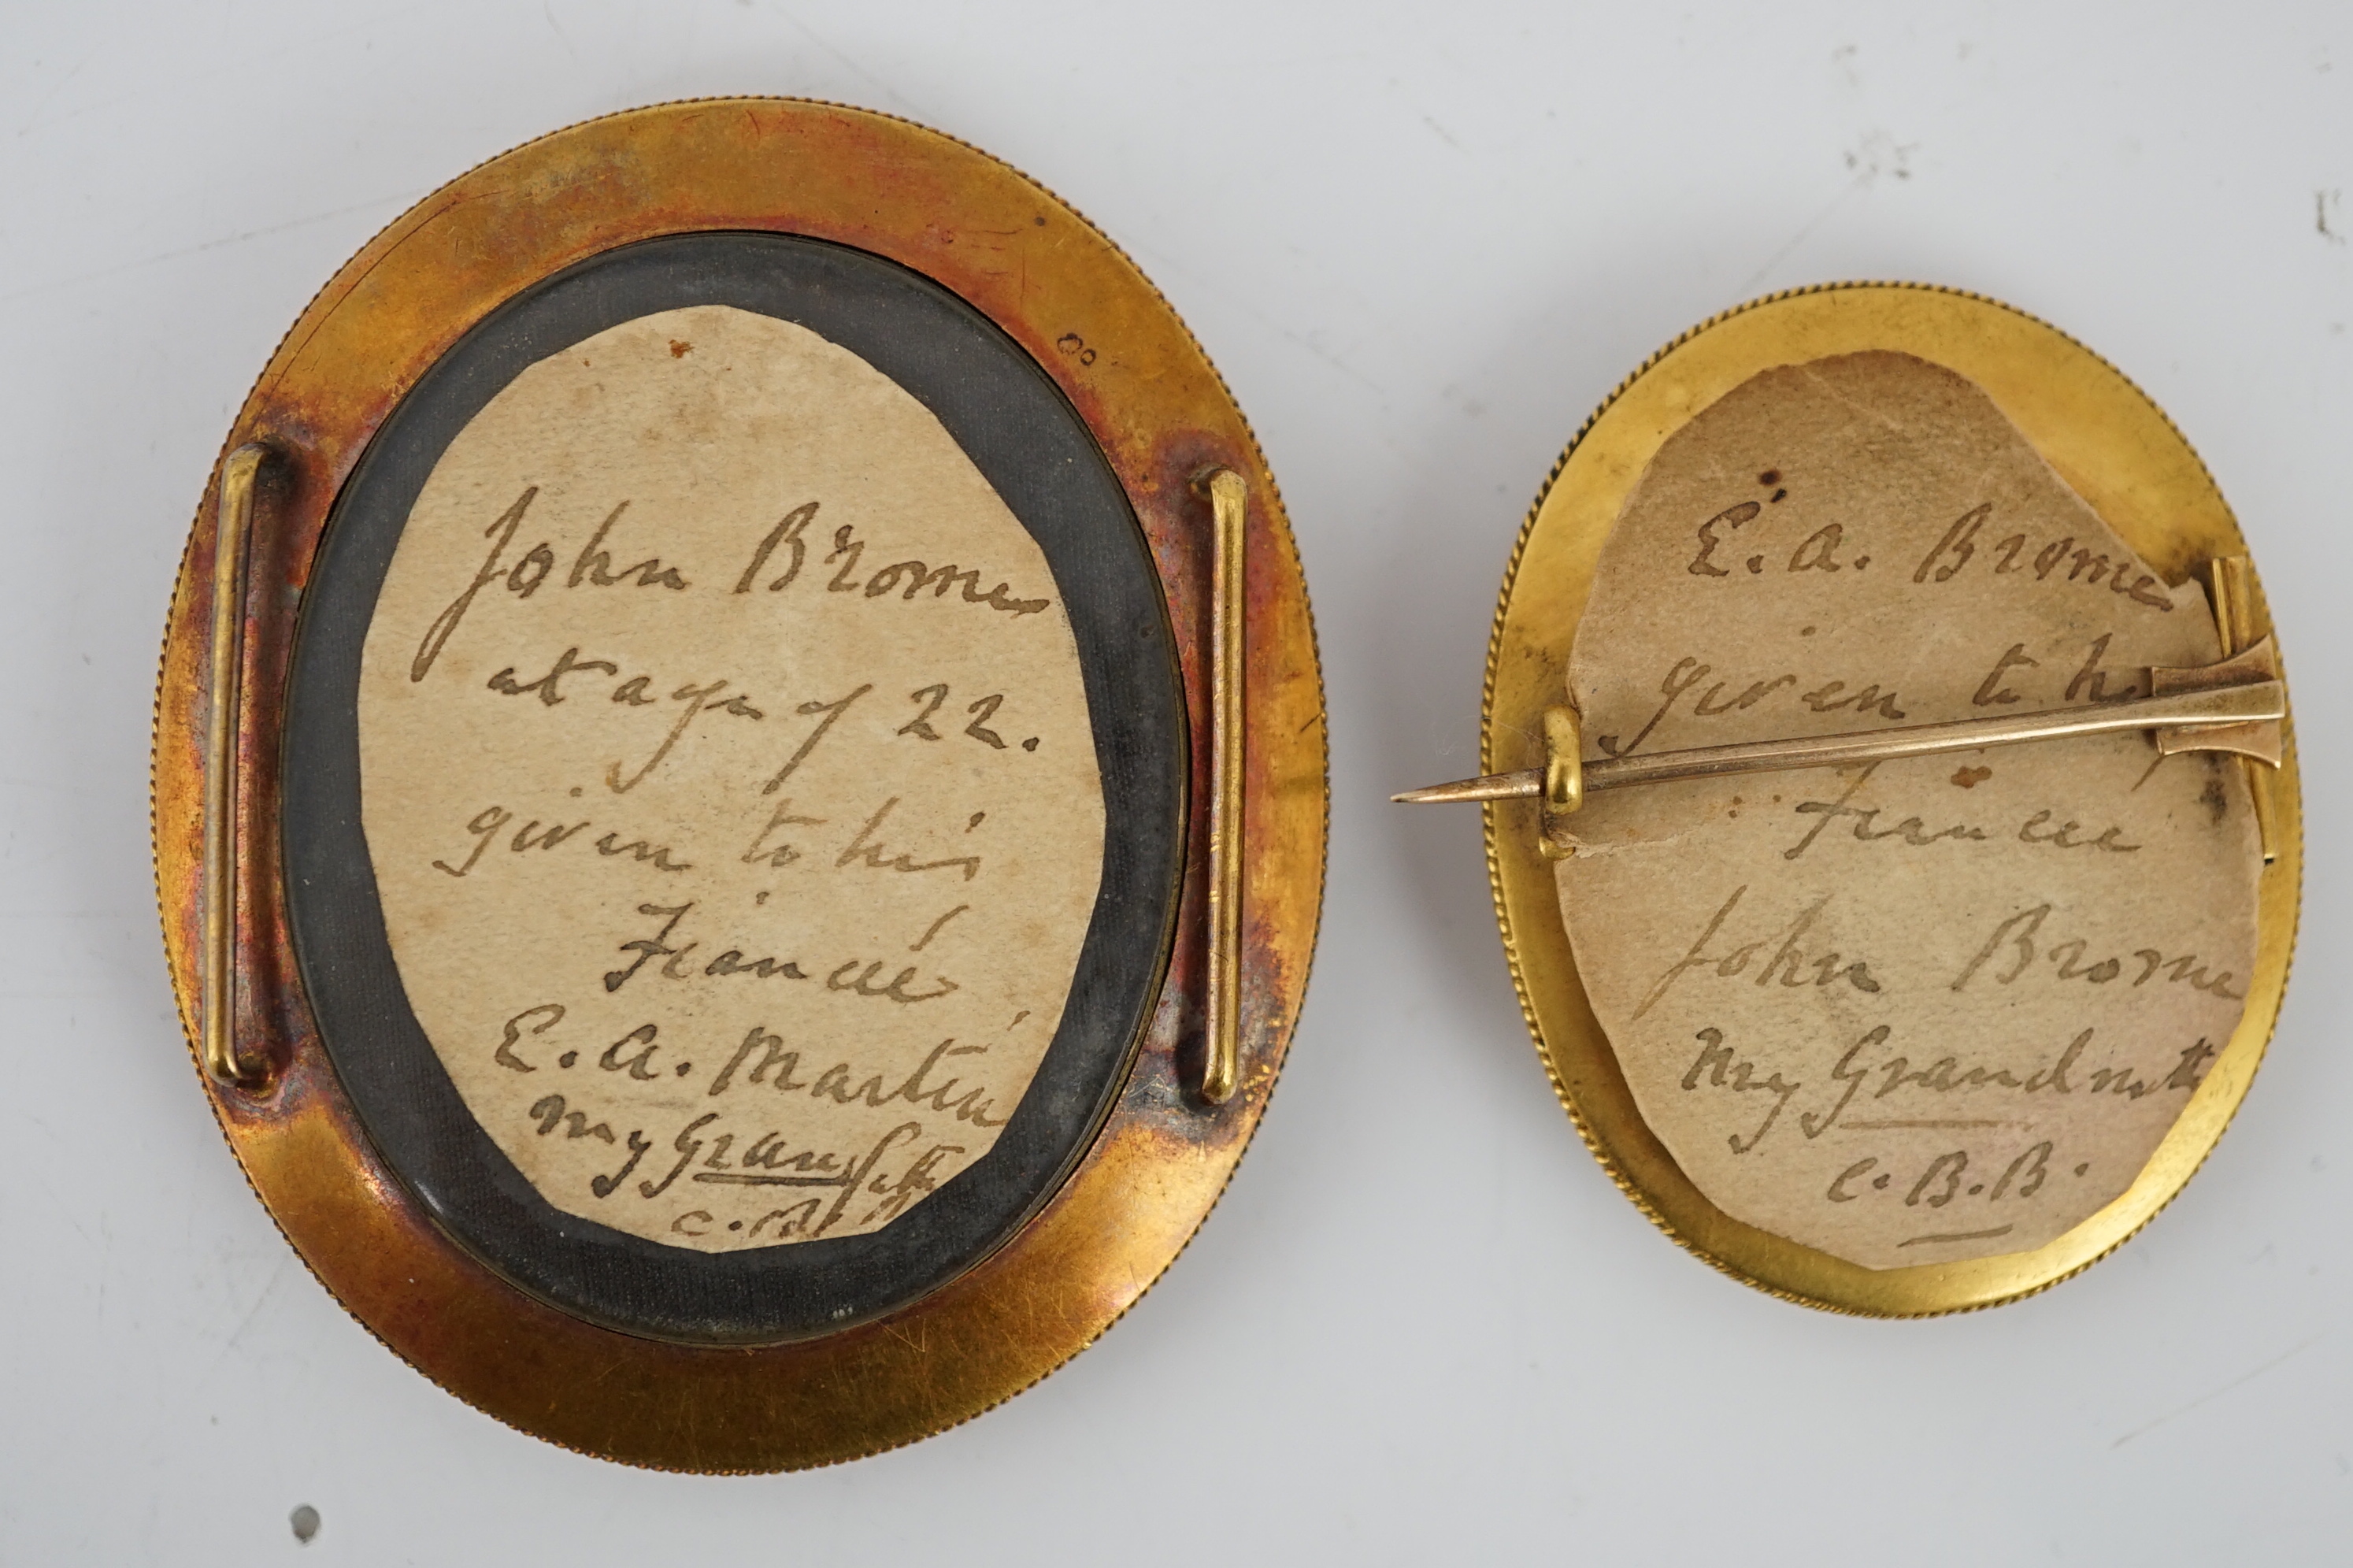 John Brome
at age of 22.
given to his
Fiancée
E. A. Martin
my Grandfather
C. B.
E. A. Brome
given to he
Fiancée
John Brome
My Grandmoth
C. B. B.